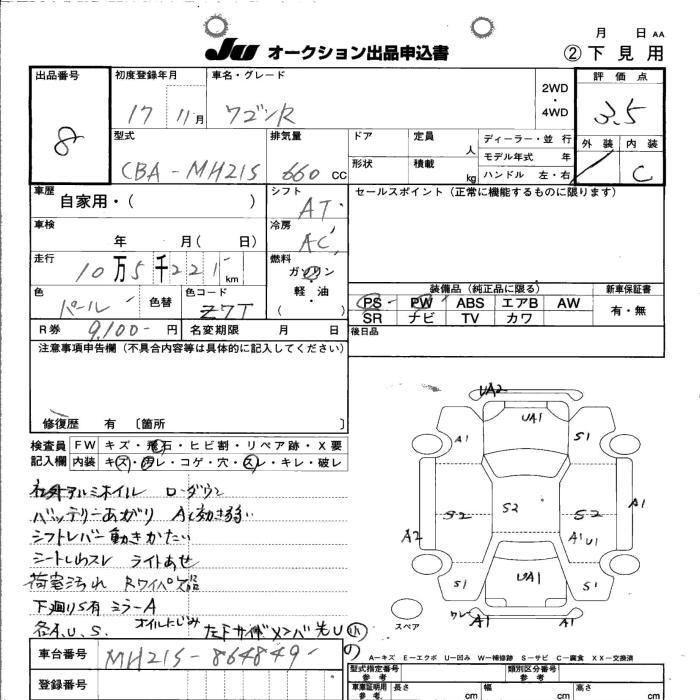 月 日 AA
JU オークション出品申込書 ② 下見用
出品番号 初度登録年月 車名・グレード 評価点
8 17 11月 ワゴンR 2WD・4WD 3.5
型式 排気量 ドア 定員 人 ディーラー・並行 外装 内装
CBA-MH21S 660cc 形状 積載 kg モデル年式 年 C
ハンドル 左・右
車歴 シフト セールスポイント(正常に機能するものに限ります)
自家用・( ) AT
車検 冷房
年 月( 日) AC
走行 燃料
10万5千221km ガソリン・軽油
色 色替 色コード ( ) 装備品(純正品に限る) 新車保証書
パール Z7T PS PW ABS エアB AW 有・無
SR ナビ TV カワ
R券 9,100- 円 名変期限 月 日 後日品
注意事項申告欄(不具合内容等は具体的に記入してください)
修復歴 有 〔箇所 〕
検査員 FW キズ・飛石・ヒビ割・リペア跡・X要
記入欄 内装 キズ・汚レ・コゲ・穴・スレ・キレ・破レ
社外アルミホイル ローダウン
バッテリーあがり AC効き弱い
シフトレバー動きかたい
シートしわスレ ライトあせ
荷室汚れ Rワイパー欠品
下廻りS有 ミラーA
各A.U.S. オイルにじみ
UA2
UA1
A1 S1
S2 S2 S2 A1
A2 A1 U1
S1 UA1 S1
A1 A1
スペア
A-キズ E-エクボ U-凹み W-補修跡 S-サビ C-腐食 XX-交換済
車台番号 MH21S-864849
登録番号
型式指定番号 参考 類別区分番号 参考
車庫証明用 参考 長さ cm 幅 cm 高さ cm